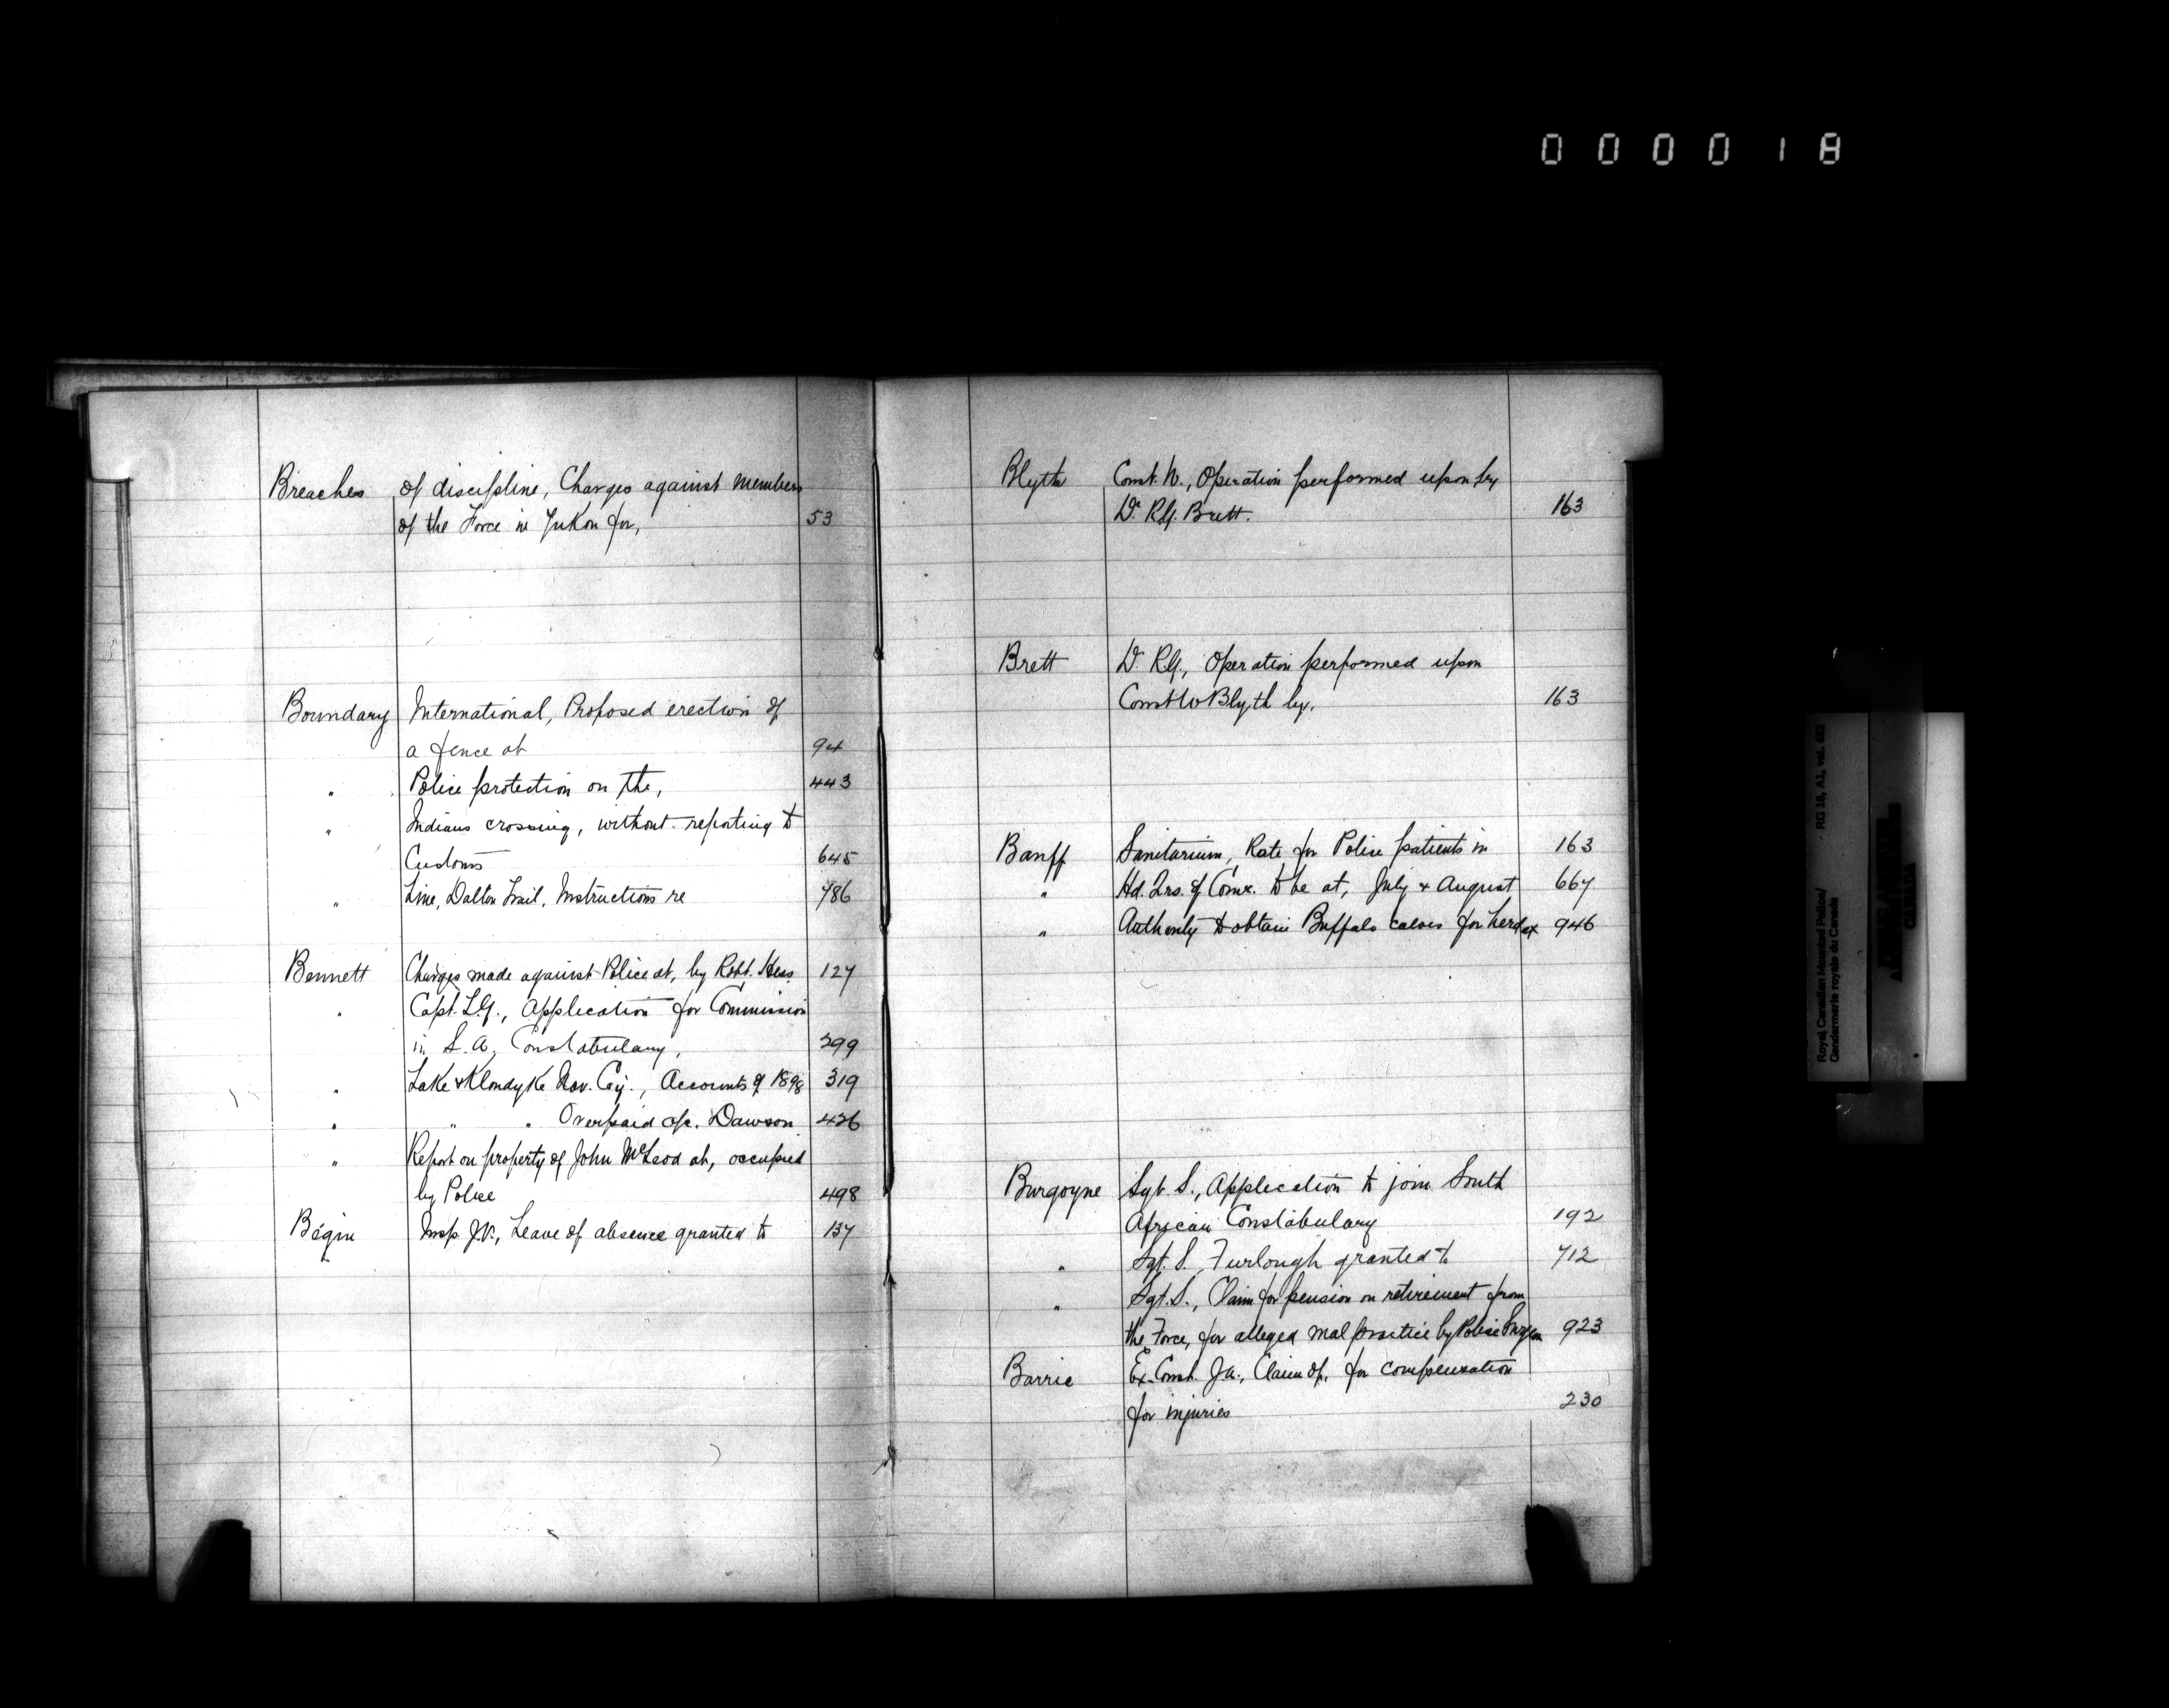 000018
Breaches of discipline, Charges against members
of the Force in Yukon for, 53
Boundary International, Proposed erection of
a fence at 94
" Police protection on the, 443
" Indians crossing, without reporting to
Customs 645
" Line, Dalton Trail, Instructions re 786
Bennett Charges made against Police at, by Robt. Hess 127
" Capt. L.G., Application for Commission
in S. A. Constabulary, 299
" Lake & Klondyke Nav. Coy., Accounts of 1898 319
" " " Overpaid a/c. Dawson 426
" Report on property of John McLeod at, occupied
by Police 498
Bégin Insp. J.V., Leave of absence granted to 137
Blyth Const. W., Operation performed upon by
Dr. R.G. Brett. 163
Brett Dr. R.G., Operation performed upon
Const W Blyth by. 163
Banff Sanitarium, Rate for Police patients in 163
" Hd. Qrs. of Comr. to be at, July & August 667
" Authority to obtain Buffalo calves for herd at 946
Burgoyne Sgt. S., Application to join South
African Constabulary 192
" Sgt. S. Furlough granted to 712
" Sgt. S., Claim for pension on retirement from
the Force, for alleged mal practice by Police Surgeon 923
Barrie Ex-Const. J.A., Claim of, for compensation
for injuries 230
Royal Canadian Mounted Police/ RG 18, A1, vol.
Gendarmerie royale du Canada